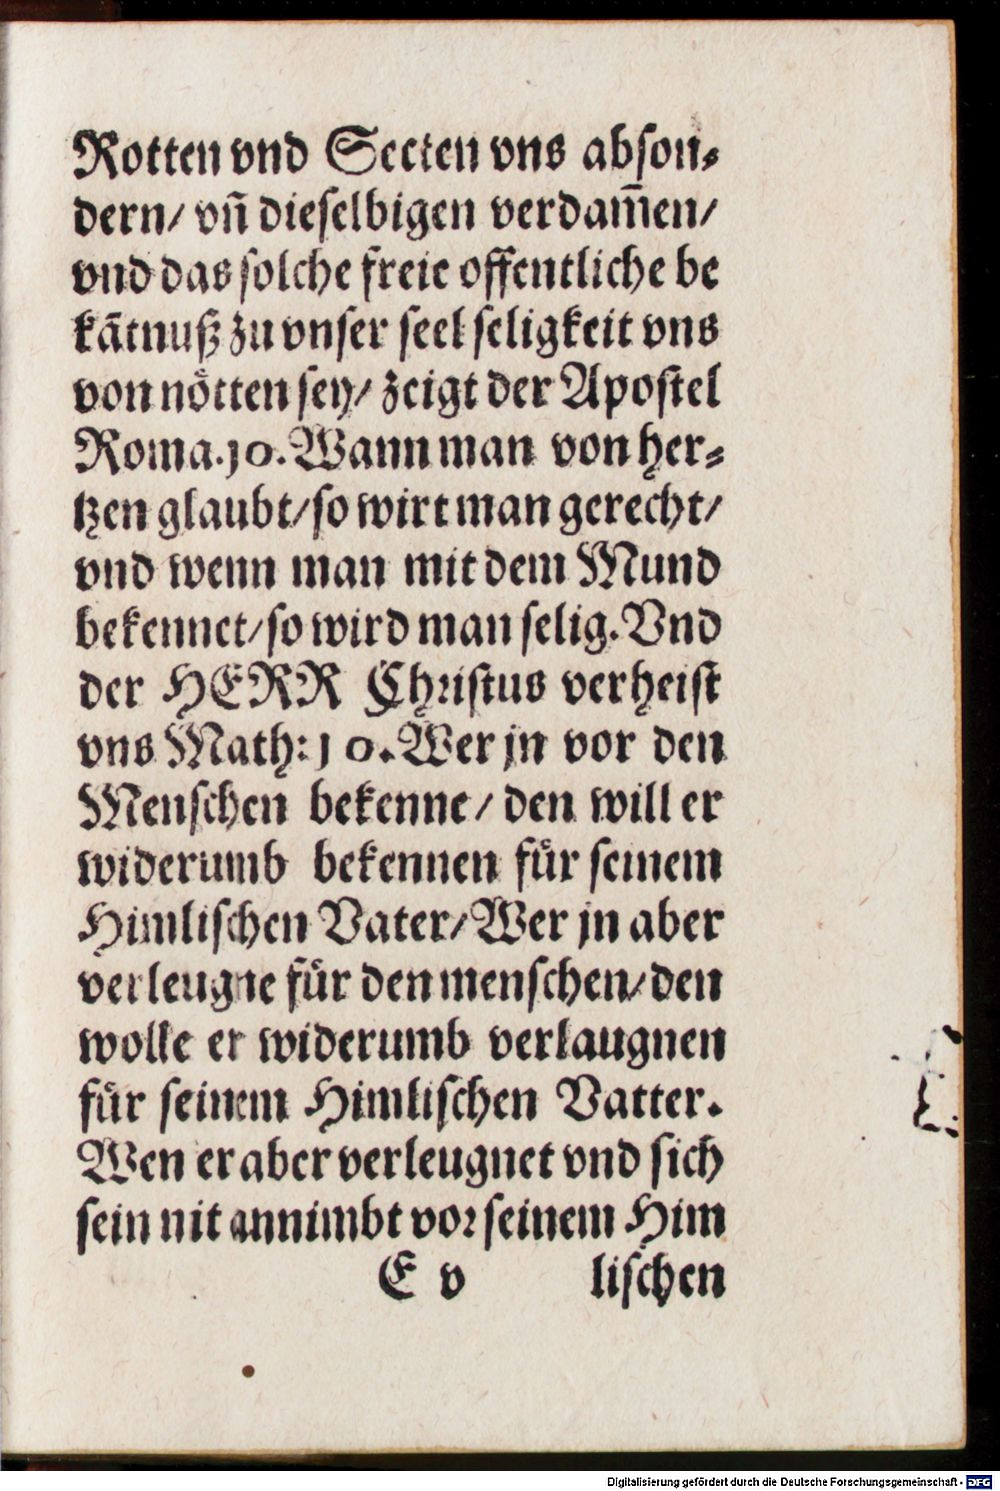 Rotten vnd Secten vns abson⸗
dern/ vñ dieselbigen verdam̃en/
vnd das solche freie offentliche be
kãtnuß zu vnser seel seligkeit vns
von nötten sey/ zeigt der Apostel
Roma.10. Wann man von her⸗
tzen glaubt/ so wirt man gerecht/
vnd wenn man mit dem Mund
bekennet/ so wird man selig. Vnd
der HERR Christus verheist
vns Math: 10. Wer jn vor den
Menschen bekenne/ den will er
widerumb bekennen für seinem
Himlischen Vater/ Wer jn aber
verleugne für den menschen/ den
wolle er widerumb verlaugnen
für seinem Himlischen Vatter.
Wen er aber verleugnet vnd sich
sein nit annimbt vor seinem Him
E v lischen
Digitalisierung gefördert durch die Deutsche Forschungsgemeinschaft - DFG